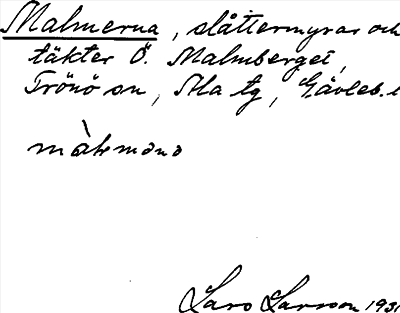 Malmerna, slåttermyrar och
täkter Ö. Malmberget,
Trönö sn, Ala tg, Gävleb. l
Lars Larsson 1931